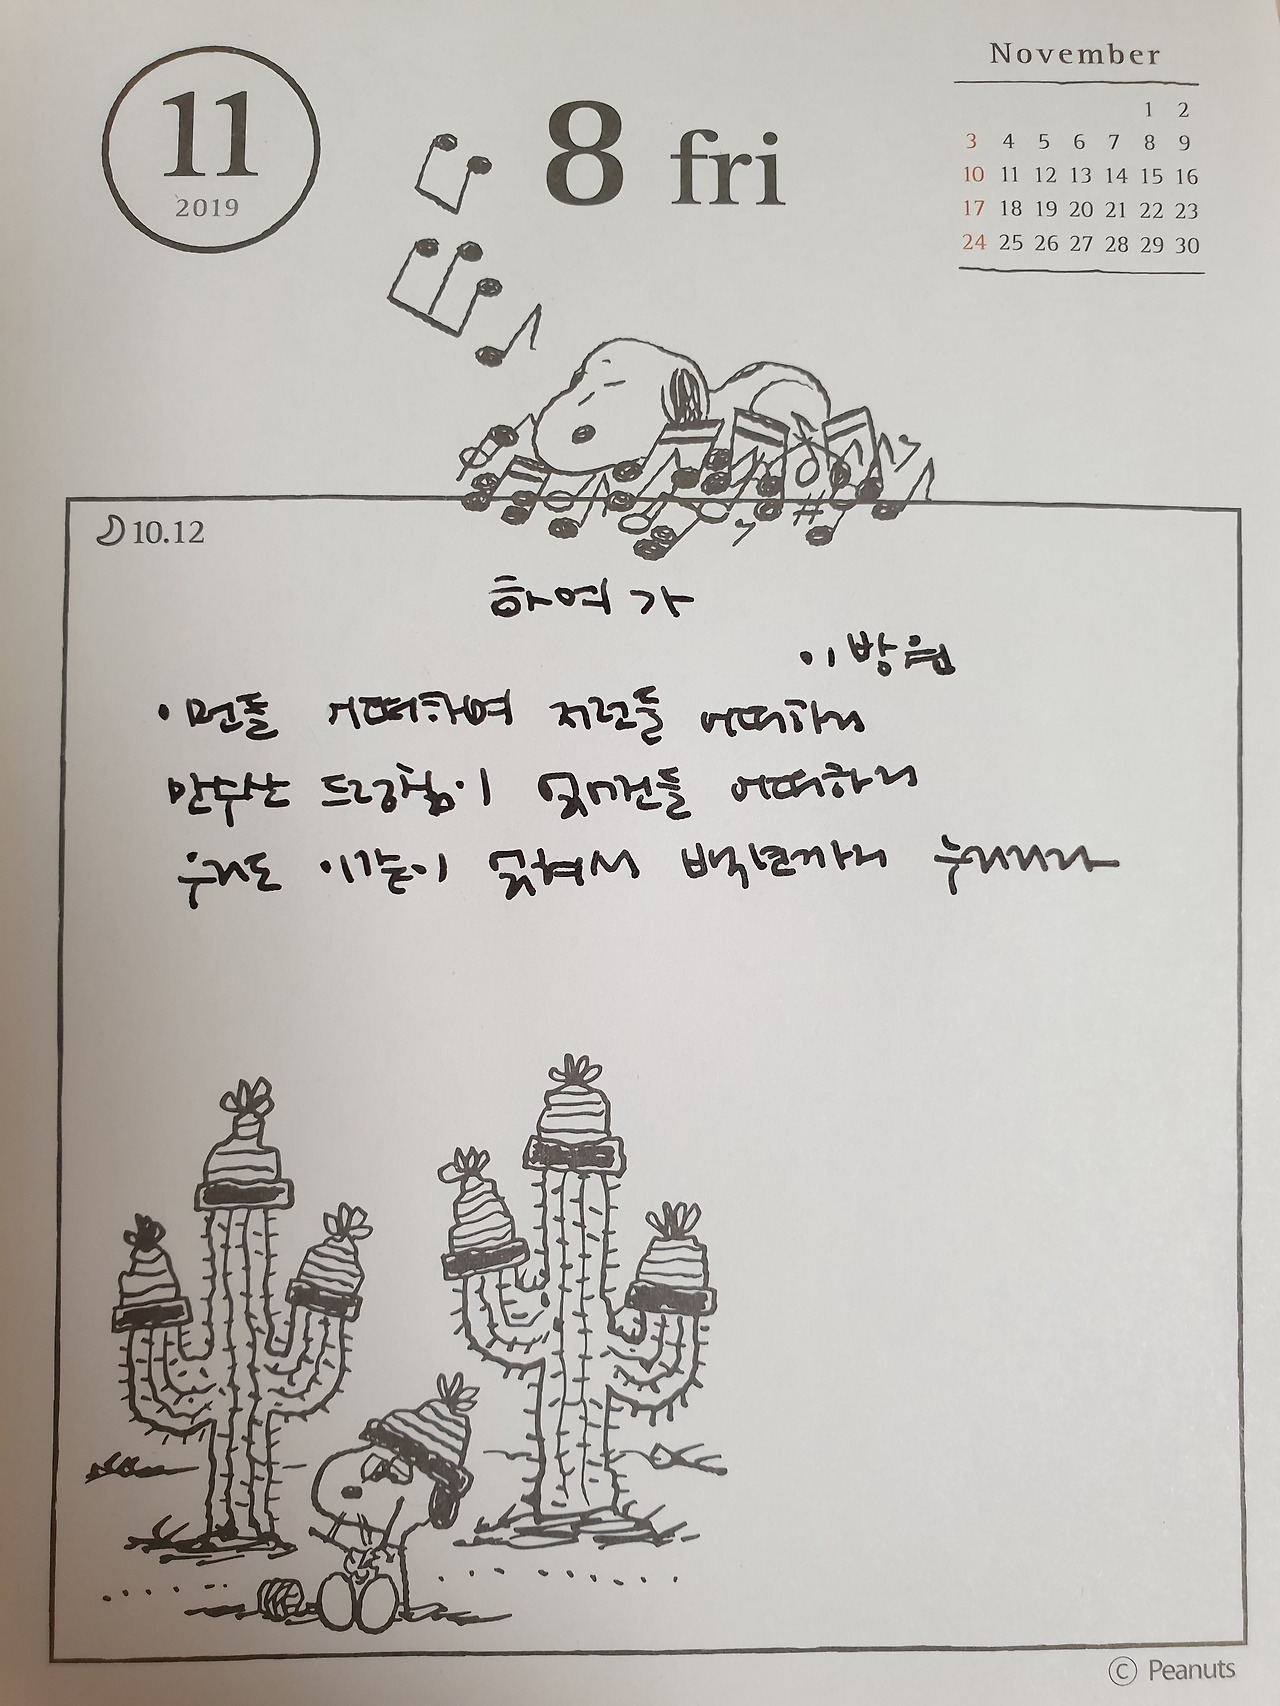 11
2019
8 fri
November
1 2
3 4 5 6 7 8 9
10 11 12 13 14 15 16
17 18 19 20 21 22 23
24 25 26 27 28 29 30
10.12
하여가
이방원
이런들 어떠하여 저런들 어떠하리
만수산 드렁칡이 얽어진들 어떠하리
우리도 이같이 얽혀서 백년까지 누리리라
© Peanuts